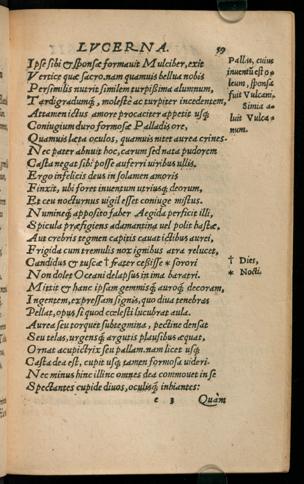 LVCERNA. 59
Ipse sibi & sponsæ formavit Mulciber, exit
Vertice quæ sacro. nam quamuis bellua nobis
Persimilis nutrit similem turpissima alumnum,
Tardigradumq́, molestè ac turpiter incedentem,
Attamen ictus amore procaciter appetit usq́
Coniugium duro formosæ Palladis ore,
Quamuis læta oculos, quamuis nitet aurea crines.
Nec pater abnuit hoc, carum sed nata pudorem
Casta negat sibi posse auferri uiribus ullis.
Ergo infelicis deus in solamen amoris
Finxit, ubi foret inuentum utriusq́ deorum,
Et ceu nocturnus uigil esset coniuge mistus.
Numineq́ apposito faber Aegida perficit illi,
Spicula præfigiens adamantina uel polit hastæ,
Aut crebris tegmen capitis cauat ictibus aurei,
Frigida cum tremulis nox ignibus atra relucet,
Candidus & fuscæ † frater cessisse * sorori
Non dolet Oceani delapsus in ima baratri.
Mittit & hanc ipsam gemmisq́ auroq́ decoram,
Ingentem, expressam signis, quo diua tenebras
Pellat, opus si quod cœlesti lucubrat aula.
Aurea seu torquet subtegmina, pectine densat
Seu telas, urgensq́ argutis plausibus aptat,
Ornat acupictrix seu pallam. nam licet usq́
Casta dea est, cupit usq́ tamen formosa uideri.
Nec minus hinc illinc omnes dea commouet in se
Spectantes cupidè diuos, oculisq́ inhiantes:
e 3 Quàm
Pallas, cuius
inuentũ est o
leum, sponsa
fuit Vulcani.
Simia a
luit Vulca
num.
† Dies,
* Nocti.